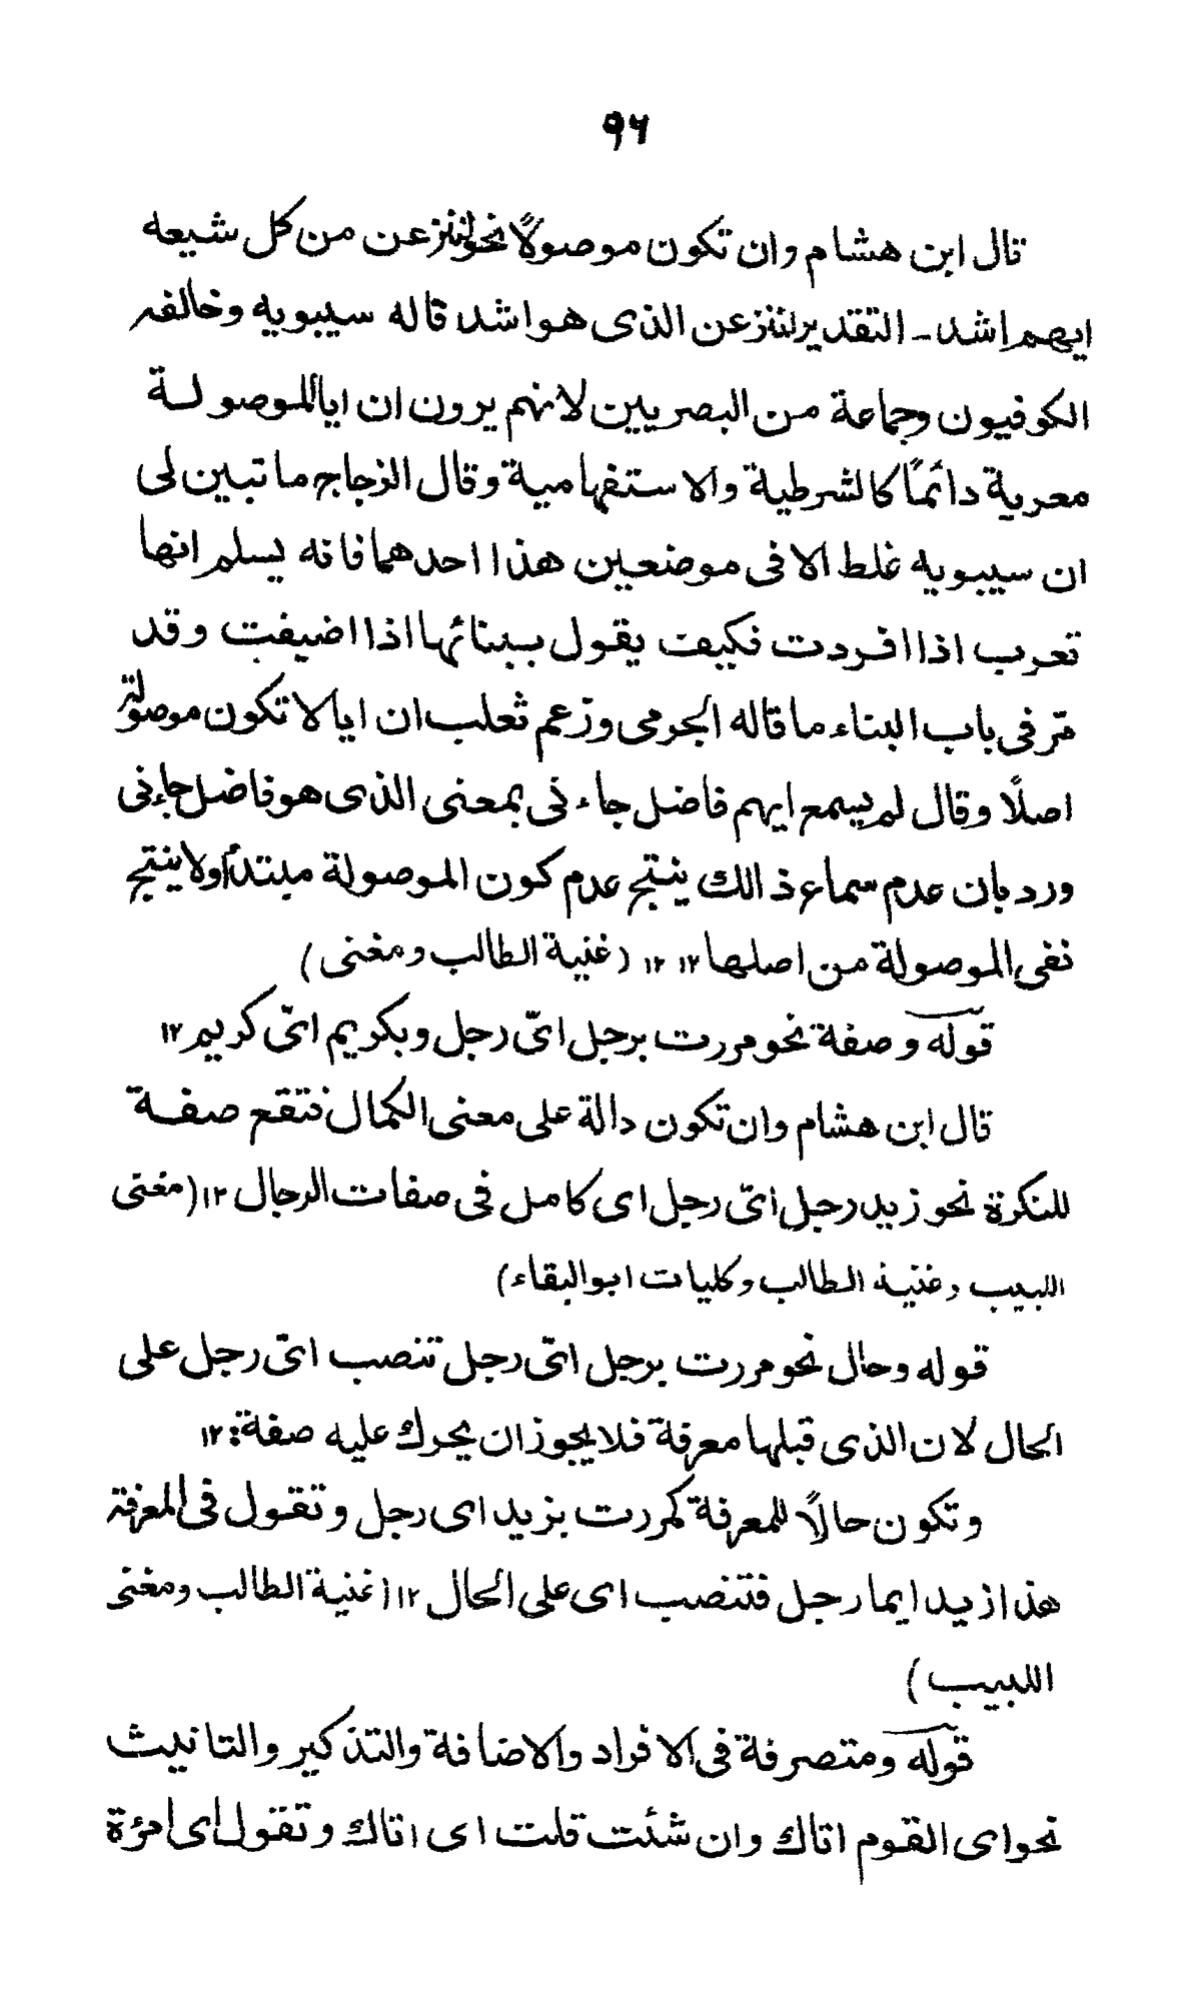 ۹۶
قال ابن هشام وان تكون موصولًا نحو لننزعن من كل شيعه
ايهم اشد ـ التقدير لننزعن الذى هو اشد قاله سيبويه وخالفه
الكوفيون وجماعة من البصريين لانهم يرون ان اياالموصولة
معربة دائمًا كالشرطية والاستفهامية وقال الزجاج ما تبين لى
ان سيبويه غلط الا فى موضعين هذا احدهما فانه يسلم انها
تعرب اذا افردت فكيف يقول ببنائها اذا اضيفت وقد
مّر فى باب البناء ما قاله الجرمى وزعم ثعلب ان ايا لا تكون موصولة
اصلًا وقال لم يسمع ايهم فاضل جاءنى بمعنى الذى هو فاضل جاءنى
ورد بان عدم سماع ذالك ينتج عدم كون الموصولة مبتدأ ولا ينتج
نفى الموصولة من اصلها ۱۲ ۱۲ (غنية الطالب ومغنى)
قوله وصفة نحو مررت برجل اىّ رجل وبكريم اىّ كريم ۱۲
قال ابن هشام وان تكون دالة على معنى الكمال فتقع صفة
للنكرة نحو زيد رجل اىّ رجل اى كامل فى صفات الرجال ۱۲ (مغنى
اللبيب وغنية الطالب وكليات ابوالبقاء)
قوله وحال نحو مررت برجل اىّ رجل تنصب اىّ رجل على
الحال لان الذى قبلها معرفة فلا يجوز ان يحرك عليه صفة: ۱۲
وتكون حالًا للمعرفة كمررت بزيد اى رجل وتقول فى المعرفة
هذا زيد ايما رجل فتنصب اى على الحال ۱۲ (غنية الطالب ومغنى
اللبيب)
قوله ومتصرفة فى الافراد والاضافة والتذكير والتانيث
نحو اى القوم اتاك وان شئت قلت اى اتاك وتقول اى امرؤة